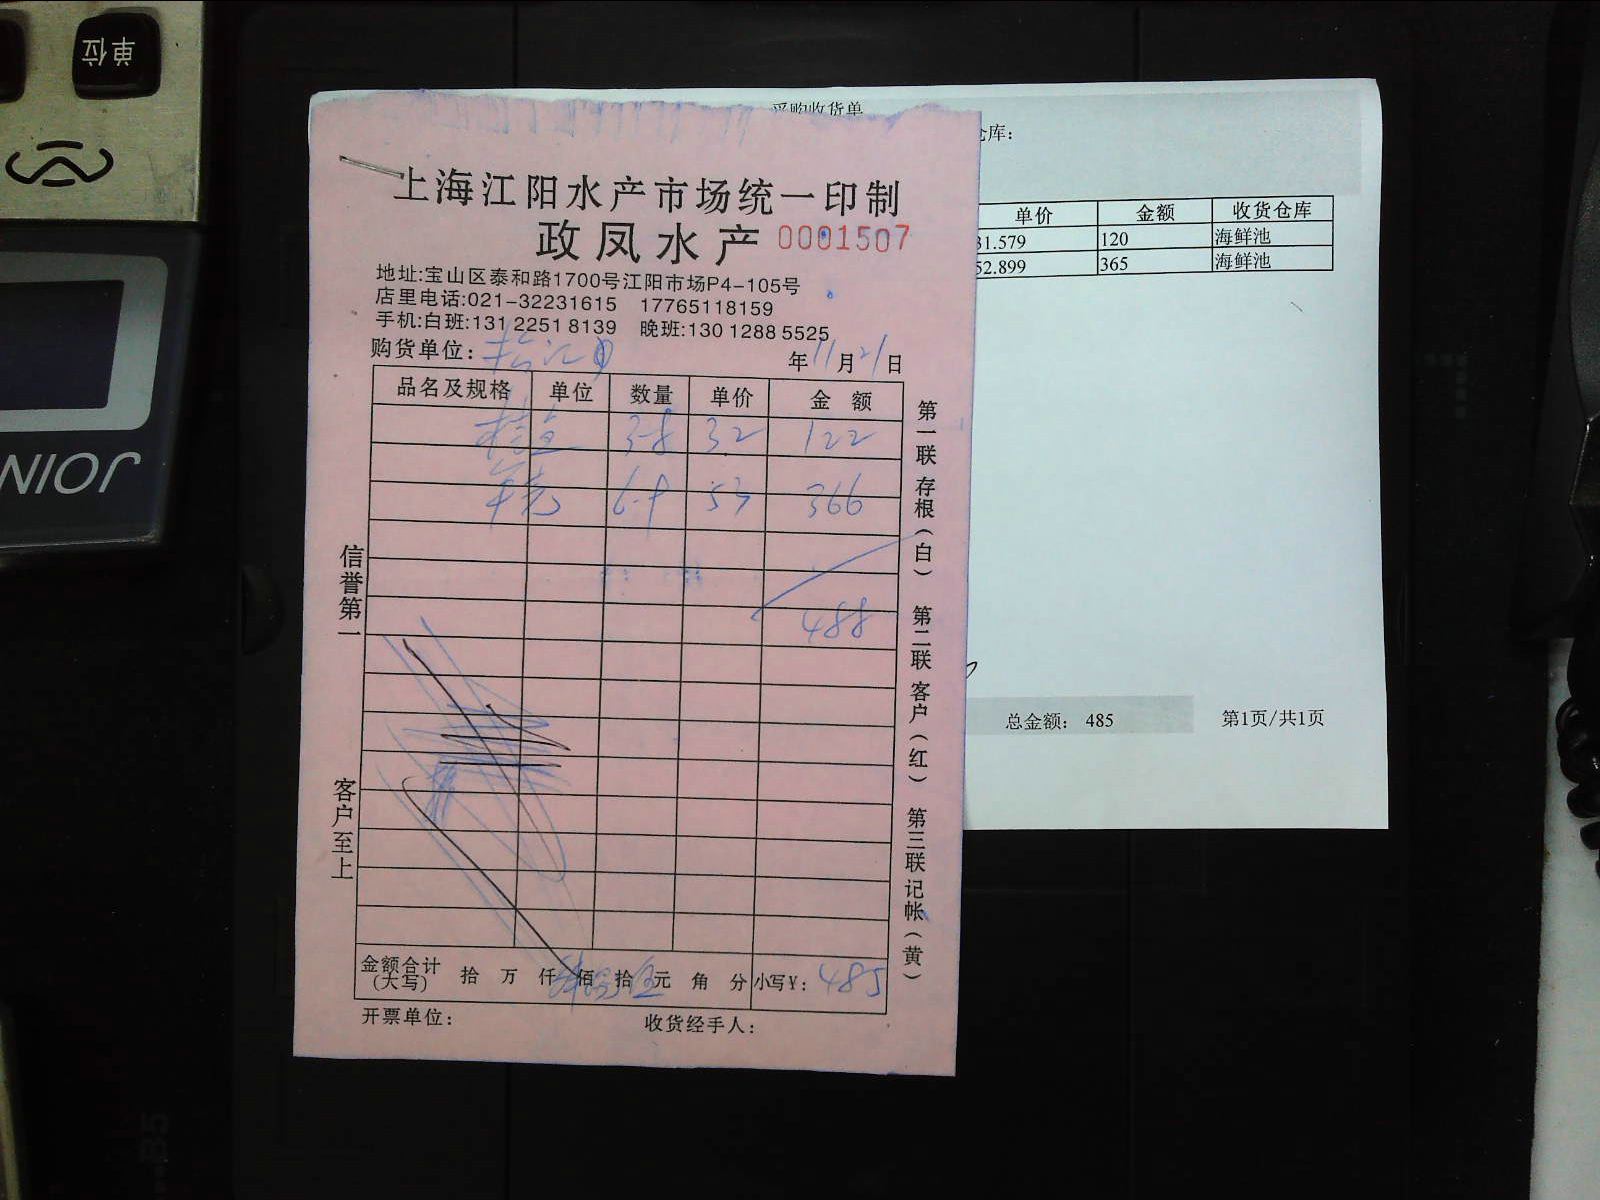 单位
JOIN
采购收货单
仓库：
单价 金额 收货仓库
31.579 120 海鲜池
52.899 365 海鲜池
总金额： 485 第1页/共1页
上海江阳水产市场统一印制
政凤水产 0001507
地址:宝山区泰和路1700号江阳市场P4-105号
店里电话:021-32231615 17765118159
手机:白班:131 2251 8139 晚班:130 1288 5525
购货单位: 年11月21日
品名及规格 单位 数量 单价 金 额
3-8 32 122
6-9 53 366
488
信誉第一
客户至上
第一联 存根（白） 第二联 客户（红） 第三联 记帐（黄）
金额合计 (大写) 拾 万 仟 佰 拾 元 角 分 小写¥: 485
开票单位: 收货经手人: